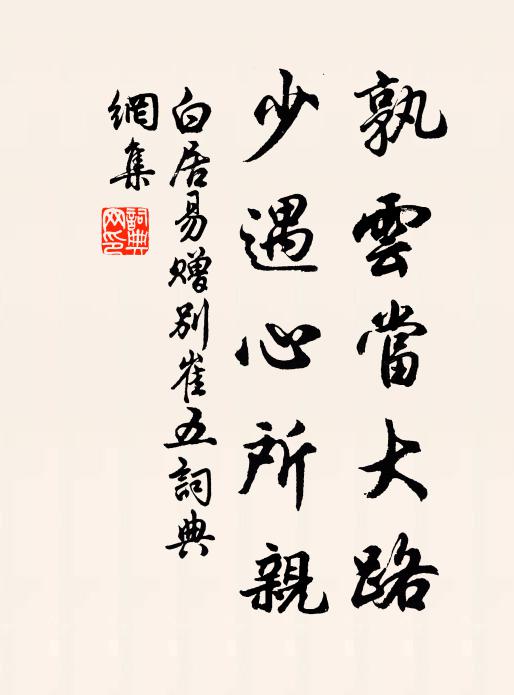 孰雲當大路
少遇心所親
白居易贈別崔五詞典
網集
詞典
网印